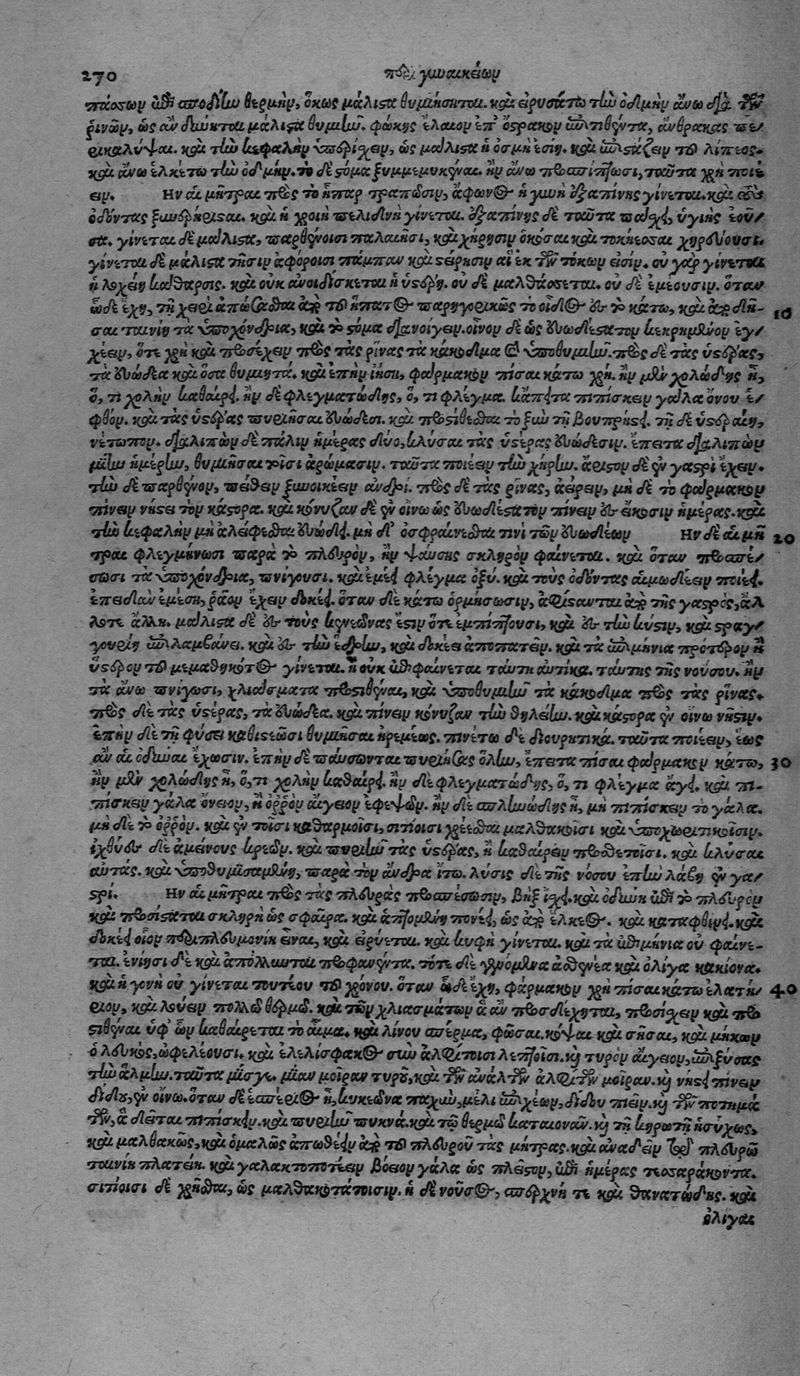 270 περὶ γυναικείων
πάσσων ἐπὶ σποδιὴν θερμὴν, ὅκως μάλιστα θυμιήσηται. καὶ εἰρυσάτω τὴν ὀδμὴν ἄνω διὰ τῶν
ῥινῶν, ὡς ἂν δύνηται μάλιστα θυμιῆν. φώκης ἔλαιον ἐπ' ὄστρακον ἐπιτιθέντα, ἄνθρακας πε-
ρικαλύψαι. καὶ τὴν κεφαλὴν ὑπερίχειν, ὡς μάλιστα ἡ ὀσμὴ ἐσίῃ. καὶ ἐπιστάζειν τοῦ λίπεος.
καὶ ἄνω ἑλκέτω τὴν ὀδμήν. τὸ δὲ στόμα ξυμμεμυκέναι. ἢν ἄνω προσπίπτωσι, ταῦτα χρὴ ποιέ-
ειν. Ην αἱ μῆτραι πρὸς τὸ ἧπαρ τραπῶσιν, ἄφωνος ἡ γυνὴ ἐξαπίνης γίνεται. καὶ τοὺς
ὀδόντας ξυνερήρεισαι. καὶ ἡ χροιὴ πελιδνὴ γίνεται. ἐξαπίνης δὲ ταῦτα πάσχει, ὑγιὴς ἐοῦ-
σα. γίνεται δὲ μάλιστα, παρθένοισι παλαιῇσι, καὶ χήρῃσιν ὁκόσαι καὶ τοκήεσσαι χηρεύουσι.
γίνεται δὲ μάλιστα τῇσιν ἀφόροισι πάμπαν καὶ στείρῃσιν αἱ ἐκ τῶν τόκων εἰσίν. οὐ γὰρ γίνεται
ἡ λοχείη κάθαρσις. καὶ οὐκ ἀνοιδίσκεται ἡ ὑστέρη. οὐ δὲ μαλθάσσεται. οὐ δὲ ἐμέουσιν. ὅταν
ὧδε ἔχῃ, τῇ χειρὶ ἀπώσασθαι ἀπὸ τοῦ ἥπατος παρηγορικῶς τὸ οἶδος ἐς τὸ κάτω, καὶ ἀναδῆ- 10
σαι ταινίῃ τὰ ὑποχόνδρια, καὶ τὸ στόμα διανοίγειν. οἶνον δὲ ὡς εὐωδέστατον κεκρημένον ἐγ-
χέειν, ὅτε χρὴ καὶ προσέχειν πρὸς τὰς ῥῖνας τὰ κάκοδμα καὶ ὑποθυμιῆν. πρὸς δὲ τὰς ὑστέρας,
τὰ εὐώδεα καὶ ὅσα θυμιητά. καὶ ἐπὴν ἰήσῃ, φάρμακον πῖσαι κάτω χρή. ἢν μὲν χολώδης ᾖ,
ὅ, τι χολὴν καθαίρει. ἢν δὲ φλεγματώδης, ὅ, τι φλέγμα. κἄπειτα πιπίσκειν γάλα ὄνου ἑ-
φθόν. καὶ τὰς ὑστέρας πυριῆσαι εὐώδεσι. καὶ προστίθεσθαι τὸ ξὺν τῇ βουπρήστει. τῇ δὲ ὑστεραίῃ,
νέτωπον. διαλιπὼν δὲ πάλιν ἡμέρας δύο, κλύσαι τὰς ὑστέρας εὐώδεσιν. ἔπειτα διαλιπὼν
μίην ἡμέρην, θυμιῆσαι τοῖσι ἀρώμασιν. ταῦτα ποιέειν τὴν χήρην. ἄριστον δὲ ἐν γαστρὶ ἔχειν.
τὴν δὲ παρθένον, πείθειν ξυνοικέειν ἀνδρί. πρὸς δὲ τὰς ῥῖνας, ἀείρειν, μὴ δὲ τὸ φάρμακον
πίνειν νῆστει τὸν κάστορα. καὶ κόνυζαν δὲ ἐν οἴνῳ ὡς εὐωδέστατον πίνειν ἐς εἴκοσιν ἡμέρας. καὶ
τὴν κεφαλὴν μὴ ἀλείφεσθαι εὐώδει. μὴ δ' ὀσφραίνεσθαι τινὶ τῶν εὐωδέων Ην δὲ αἱ μῆ- 20
τραι φλεγμήνωσι παρὰ τὸ πλευρὸν, ἢν ψαύσῃς σκληρὸν φαίνεται. καὶ ὅταν προσπέ-
σωσι τὰ ὑποχόνδρια, πνίγουσι. καὶ ἐμέει φλέγμα ὀξύ. καὶ τοὺς ὀδόντας αἱμωδέειν ποιέει.
ἐπειδὰν ἐμέσῃ, ῥᾷον ἔχειν δοκέει. ὅταν δὲ κάτω ὁρμήσωσιν, ἀφίστανται ἀπὸ τῆς γαστρὸς, ἄλ
λοτε ἄλλῃ. μάλιστα δὲ ἐς τοὺς κενεῶνας ἔστιν ὅτε ἐμπίπτουσι, καὶ ἐς τὴν κύστιν, καὶ στραγ-
γουρίη ἐπιλαμβάνει. καὶ ἐς τὴν ἕδρην, καὶ δοκέει ἀποπατεῖν. καὶ τὰ ἐπιμήνια πρότερον ἢ
ὕστερον τοῦ μεμαθηκότος γίνεται. ἢ οὐκ ἐπιφαίνεται ταύτῃ αὐτίκα. ταύτης τῆς νούσου. ἢν
τὰ ἄνω πνίγωσι, χλιάσματα προστιθέναι, καὶ ὑποθυμιῆν τὰ κάκοδμα πρὸς τὰς ῥῖνας.
πρὸς δὲ τὰς ὑστέρας, τὰ εὐώδεα. καὶ πίνειν κόνυζαν τὴν θήλειαν. καὶ κάστορα ἐν οἴνῳ νῆστιν.
ἐπὴν δὲ τῇ φύσει καθιστέωσι θυμιῆσαι ἠρεμέως. πινέτω δὲ διουρητικά. ταῦτα ποιέειν, ἕως
ἂν αἱ ὀδύναι ἔχωσιν. ἐπὴν δὲ παύσωνται πυριήσας ὅλην, ἔπειτα πῖσαι φάρμακον κάτω, 30
ἢν μὲν χολώδης ᾖ, ὅ, τι χολὴν καθαίρει. ἢν δὲ φλεγματώδης, ὅ, τι φλέγμα ἄγει. καὶ πι-
πίσκειν γάλα ὄνειον, ἢ ὀρρὸν αἴγειον ἐφ' ἑφθῷ. ἢν δὲ σπληνώδης ᾖ, μὴ πιπίσκειν τὸ γάλα.
μὴ δὲ τὸ ὀρρόν. καὶ ἐν τοῖσι καθαρμοῖσι, σιτίοισι χρέεσθαι μαλθακοῖσι καὶ ὑποχωρητικοῖσιν.
ἰχθύσι δὲ ἀμείνους κρεῶν. καὶ πυριῆν τὰς ὑστέρας, ἢ καθαίρειν προσθετοῖσι. καὶ κλύσαι
αὐτάς. καὶ ὑποθυμιησαμένη, παρὰ τὸν ἄνδρα ἴτω. λύσις δὲ τῆς νόσου ἐπὴν λάβῃ ἐν γα-
στρί. Ην αἱ μῆτραι πρὸς τὰς πλευρὰς προσπέσωσιν, βὴξ ἴσχει. καὶ ὀδύνη ἐπὶ τὸ πλευρὸν
καὶ προσίσταται σκληρὴ ὡς σφαῖρα. καὶ ἁπτομένη πονέει, ὡς ἀπὸ ἕλκεος. καὶ καταφθίνει. καὶ
δοκέει οἷον περιπλευμονίη εἶναι, καὶ εἰρύεται. καὶ κυφὴ γίνεται. καὶ τὰ ἐπιμήνια οὐ φαίνε-
ται. ἐνίῃσι δὲ καὶ ἀπόλλυνται προφανέντα. τότε δὲ γινόμενα ἀσθενέα καὶ ὀλίγα κακίονα.
καὶ ἡ γονὴ οὐ γίνεται τουτέου τοῦ χρόνου. ὅταν ὧδε ἔχῃ, φάρμακον χρὴ πῖσαι κάτω ἐλατή- 40
ριον, καὶ λούειν πολλῷ θερμῷ. καὶ τῶν χλιασμάτων ἃ ἂν προσδέχηται, προσίσχειν καὶ προ
στιθέναι ὑφ' ὧν καθαίρεται τὸ αἷμα. καὶ λίνου σπέρμα, φῶσαι. κόψαι καὶ σῆσαι, καὶ μήκων
ὁ λευκὸς, ὠφελέουσι. καὶ ἐλελίσφακος σὺν ἀλφίτοισι λεπτοῖσι. καὶ τυρὸν αἴγειον, ἐπιξύσας
τὴν ἅλμην. ταῦτα μίσγε. μίαν μοῖραν τυροῦ, καὶ τῶν ἀνάλτων ἀλφίτων μοῖραν. καὶ νήστει πίνειν
δίδου, ἐν οἴνῳ. ὅταν δὲ ἑσπέριος ᾖ, κυκεῶνα παχὺν, μέλι ἐπιχέων, δίδου πιεῖν. καὶ τῶν ποτημά
των, ἃ δέεται πιπίσκειν. καὶ πυριῆν πυκνά. καὶ τῷ θερμῷ καταιονᾶν. καὶ τῇ κηρωτῇ ἡσύχως,
καὶ μαλθακῶς, καὶ ὁμαλῶς ἀπωθέειν ἀπὸ τοῦ πλευροῦ τὰς μήτρας. καὶ ἀναδεῖν τὸ πλευρὸν
ταινίῃ πλατείῃ. καὶ γαλακτοποτέειν βόειον γάλα ὡς πλεῖστον, ἐπὶ ἡμέρας τεσσαράκοντα.
σιτίοισι δὲ χρῆσθαι, ὡς μαλθακωτάτοισιν. ἡ δὲ νοῦσος, σπερχνή τε καὶ θανατώδης. καὶ
ὀλίγαι